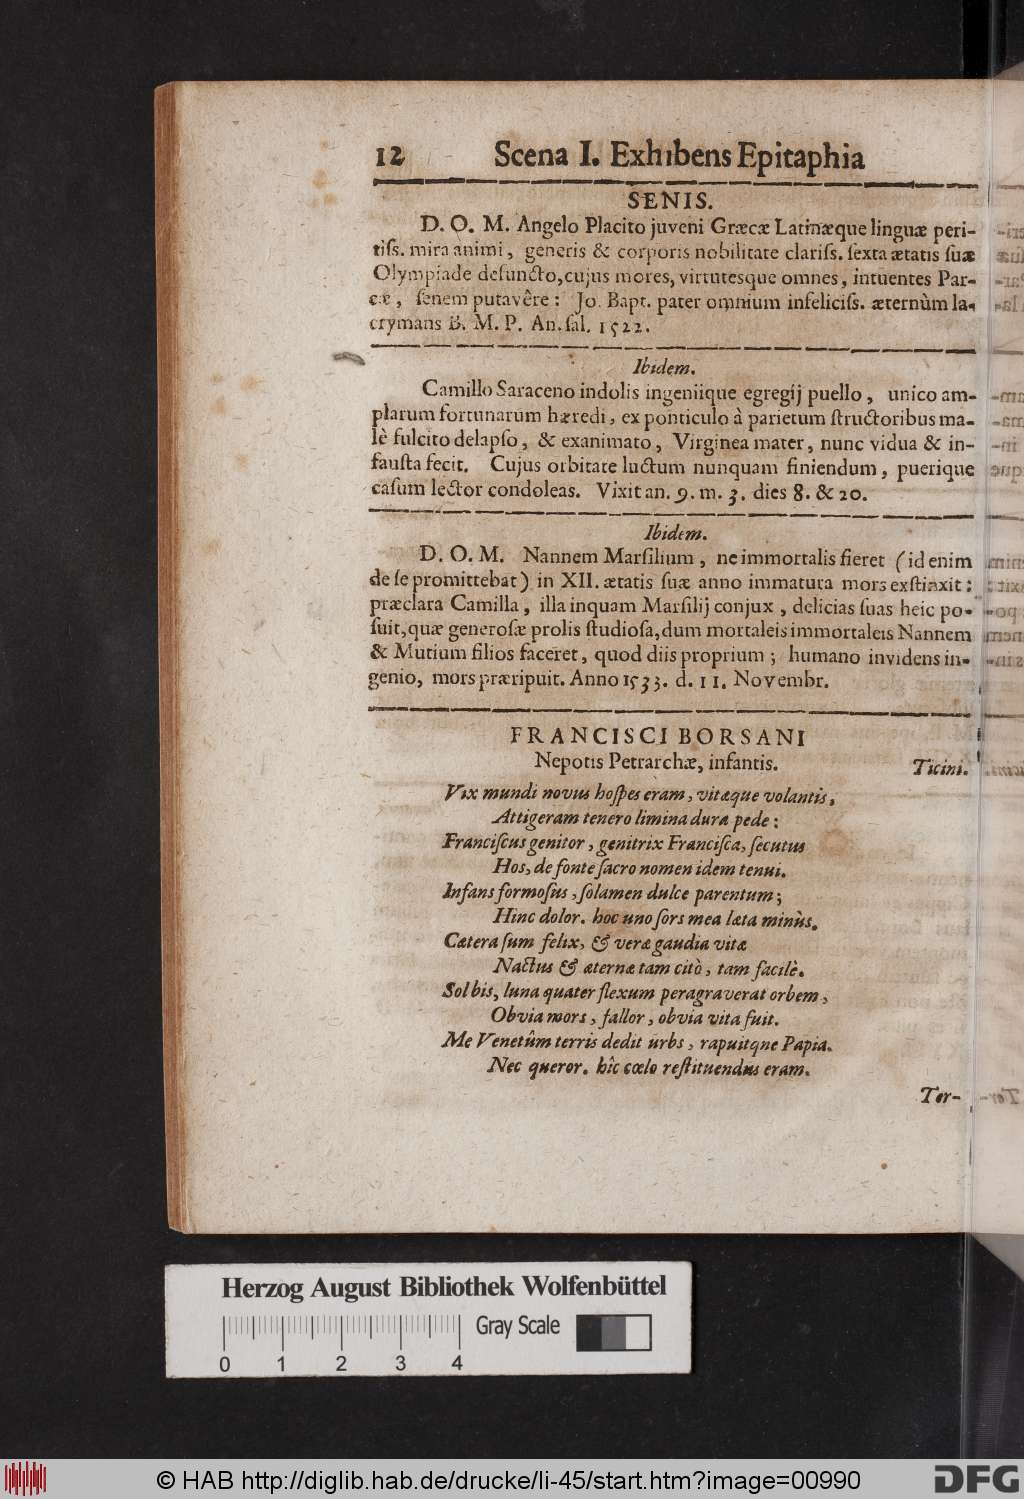 12 Scena I. Exhibens Epitaphia
SENIS.
D. O. M. Angelo Placito juveni Græcæ Latinæque linguæ peri-
tiſs. mira animi, generis & corporis nobilitate clariſs. ſexta ætatis ſuæ
Olympiade defuncto, cujus mores, virtutesque omnes, intuentes Par-
cæ, ſenem putavêre: Jo. Bapt. pater omnium infeliciſs. æternùm la-
crymans B. M. P. An. ſal. 1522.
Ibidem.
Camillo Saraceno indolis ingeniique egregij puello, unico am-
plarum fortunarum hæredi, ex ponticulo à parietum ſtructoribus ma-
lè fulcito delapſo, & exanimato, Virginea mater, nunc vidua & in-
fauſta fecit. Cujus orbitate luctum nunquam finiendum, puerique
caſum lector condoleas. Vixit an. 9. m. 3. dies 8. & 20.
Ibidem.
D. O. M. Nannem Marſilium, ne immortalis fieret (id enim
de ſe promittebat) in XII. ætatis ſuæ anno immatura mors exſtinxit:
præclara Camilla, illa inquam Marſilij conjux, delicias ſuas heic po-
ſuit, quæ generoſæ prolis ſtudioſa, dum mortaleis immortaleis Nannem
& Mutium filios faceret, quod diis proprium; humano invidens in-
genio, mors præripuit. Anno 1533. d. 11. Novembr.
FRANCISCI BORSANI
Nepotis Petrarchæ, infantis. Ticini.
Vix mundi novus hoſpes eram, vitæque volantis,
Attigeram tenero limina dura pede:
Franciſcus genitor, genitrix Franciſca, ſecutus
Hos, de fonte ſacro nomen idem tenui.
Infans formoſus, ſolamen dulce parentum;
Hinc dolor. hoc uno ſors mea læta minùs.
Cætera ſum felix, & veræ gaudia vitæ
Nactus & æternæ tam citò, tam facilè.
Sol bis, luna quater flexum peragraverat orbem,
Obvia mors, fallor, obvia vita fuit.
Me Venetûm terris dedit urbs, rapuitque Papia.
Nec queror. hîc cœlo reſtituendus eram.
Ter-
Herzog August Bibliothek Wolfenbüttel
Gray Scale
0 1 2 3 4
© HAB http://diglib.hab.de/drucke/li-45/start.htm?image=00990
DFG